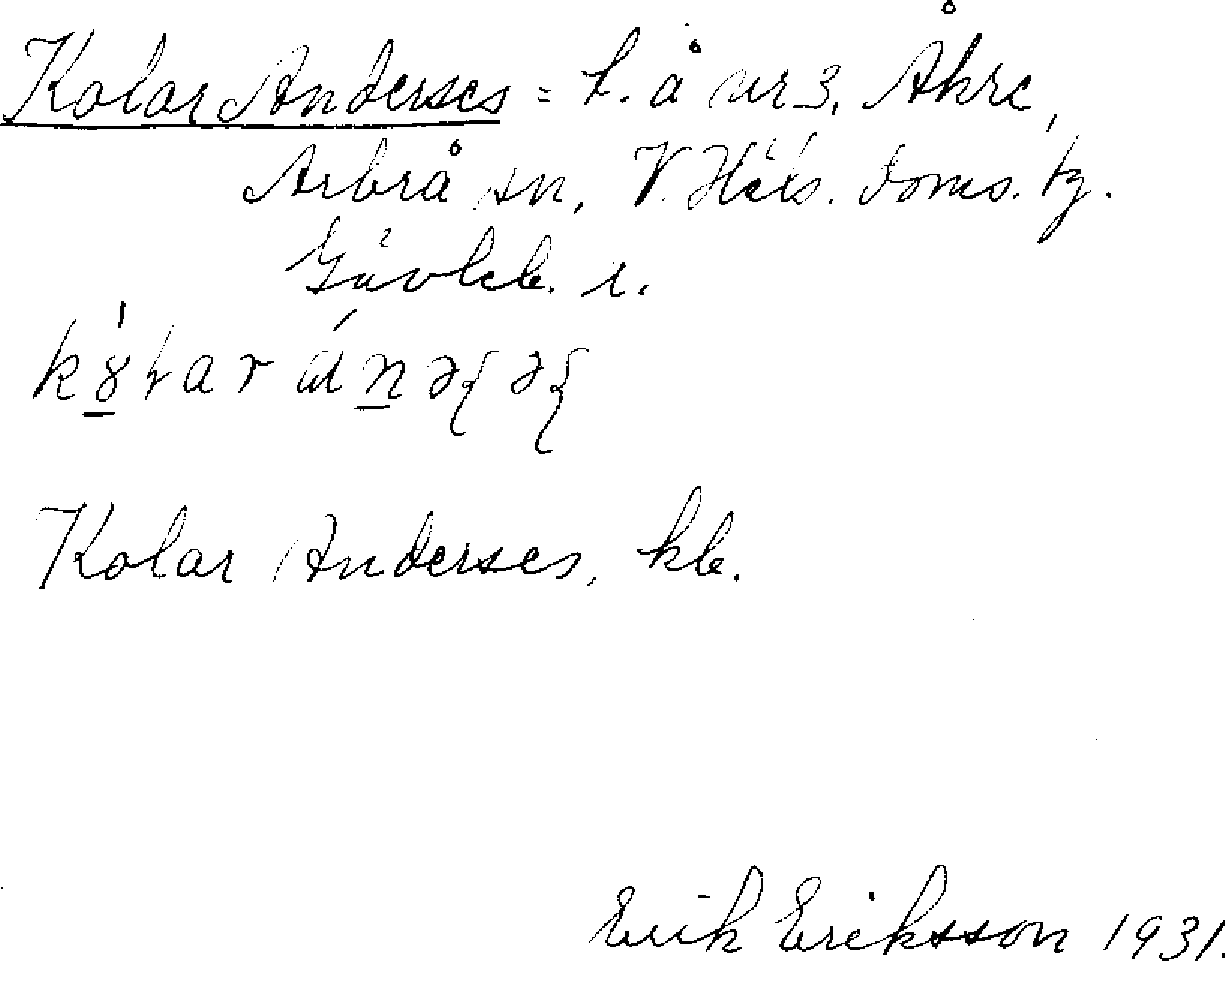 Kolar Anderses = t. å nr 3, Åkre,
Arbrå sn, V. Häls. doms. tg.
Gävleb. l.
Kolar Anderses, kb.
Erik Eriksson 1931.